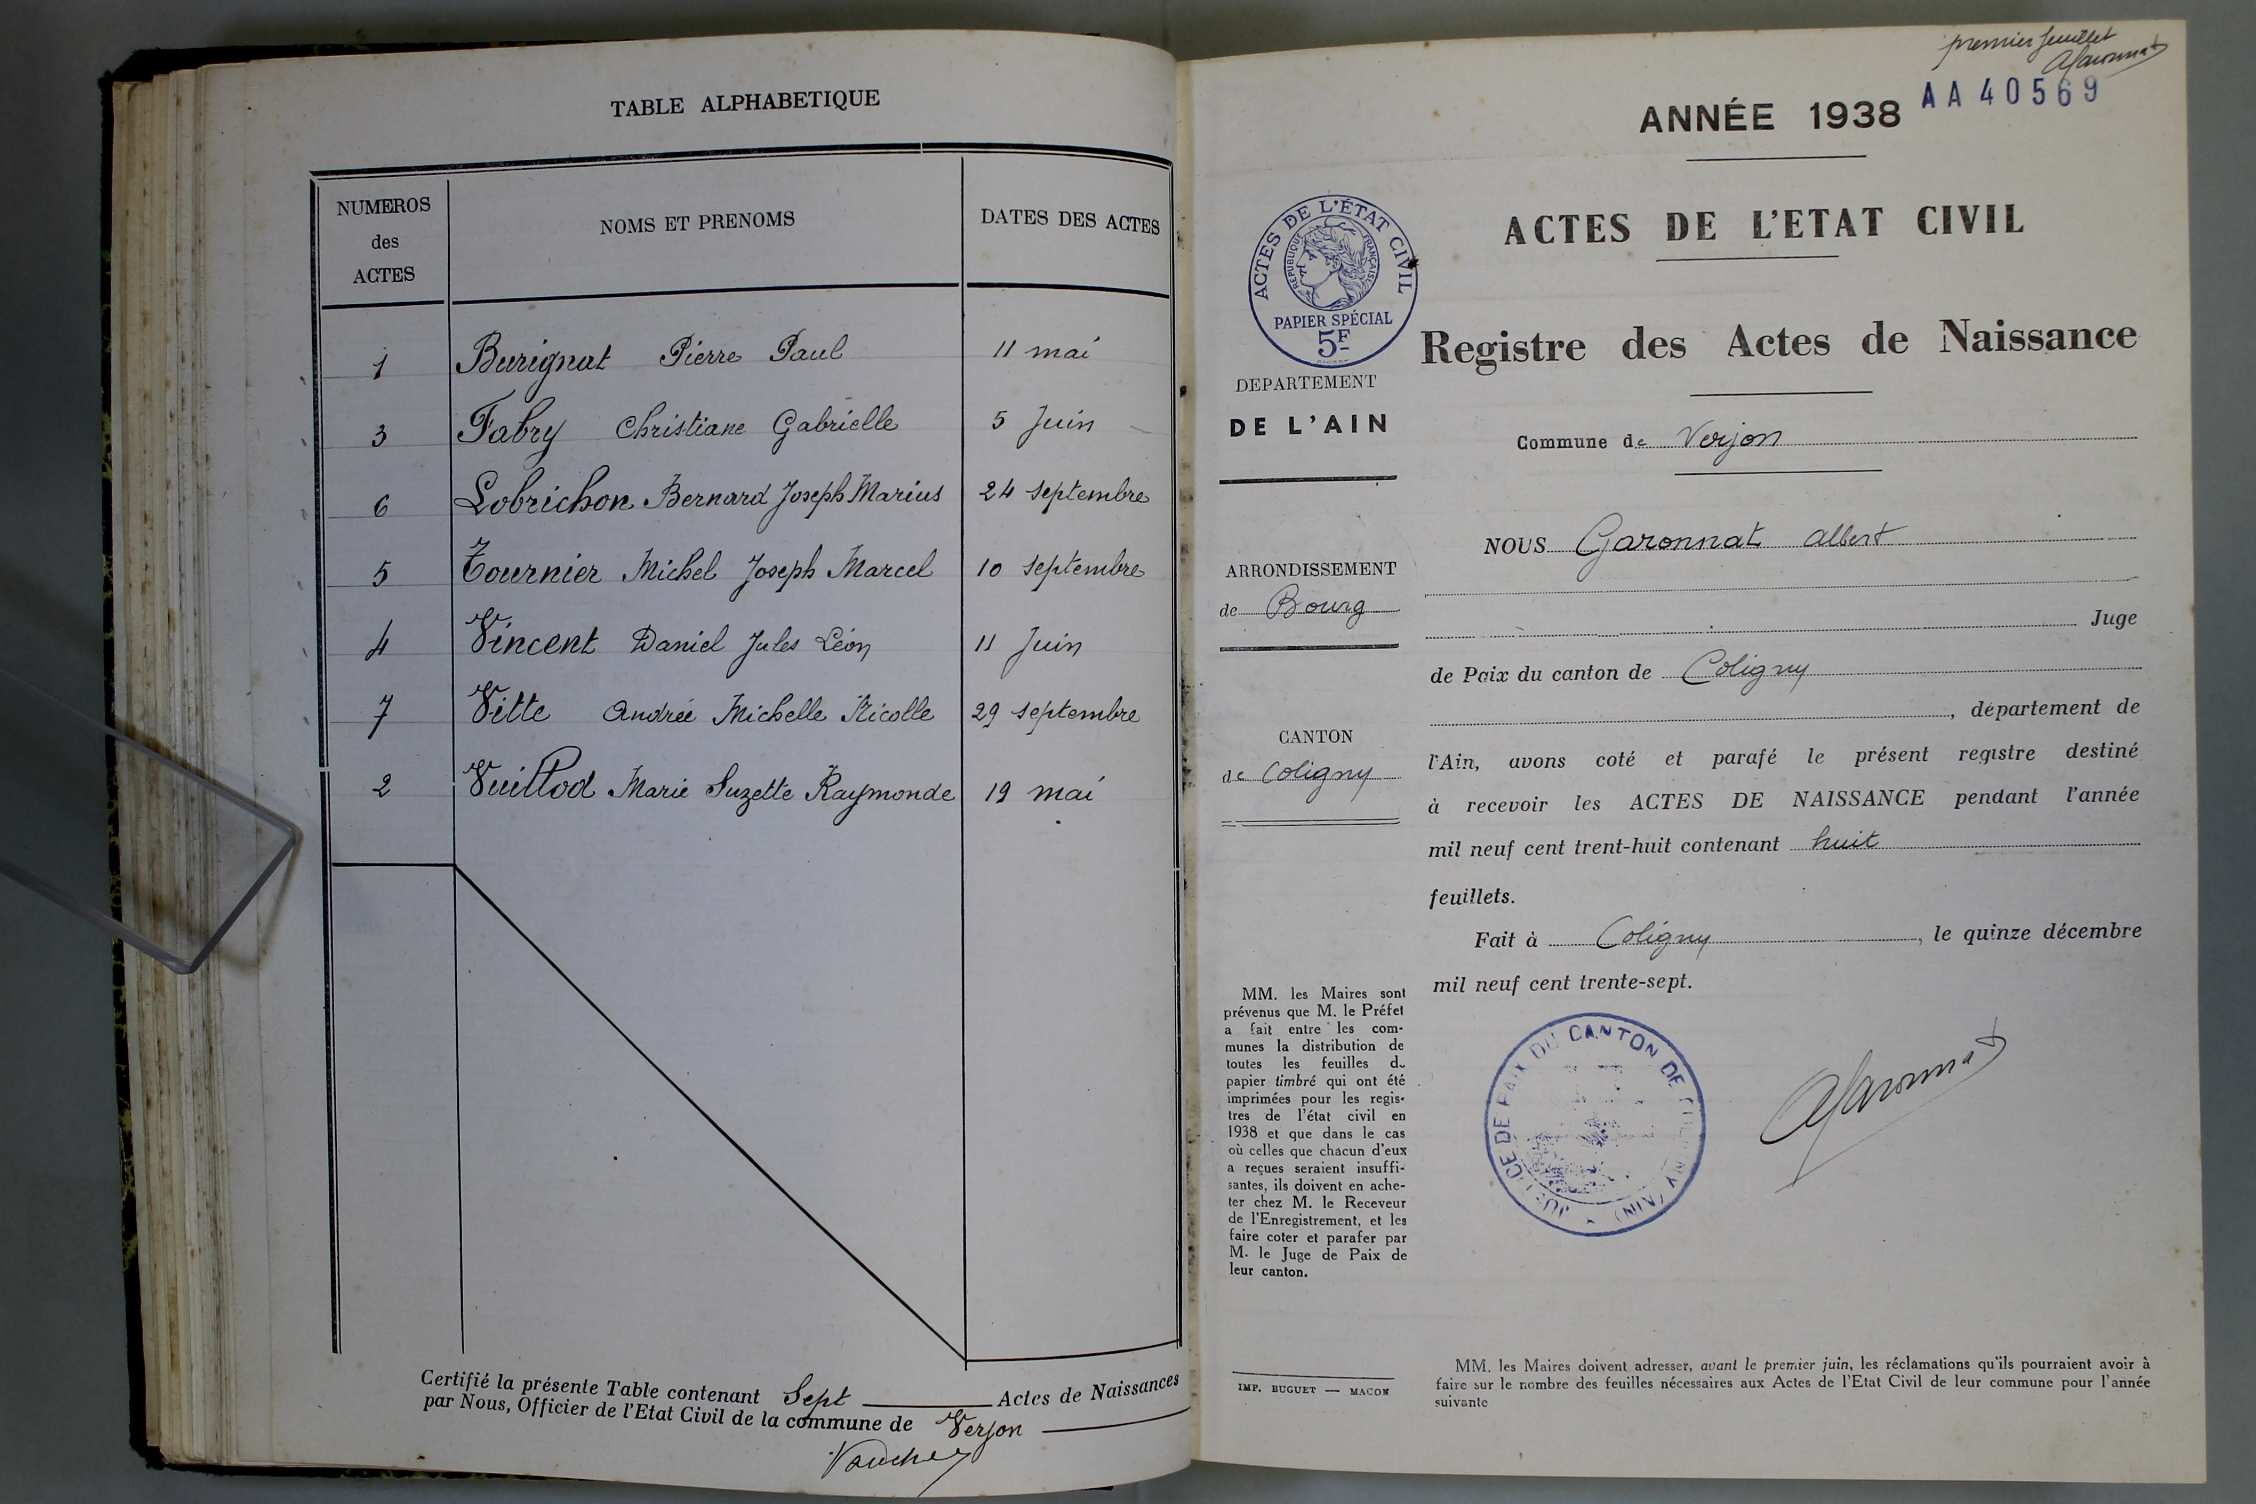 TABLE ALPHABETIQUE
NUMEROS des ACTES
NOMS ET PRENOMS
DATES DES ACTES
1 Burignat Pierre Paul 11 mai
3 Fabry Christiane Gabrielle 5 Juin
6 Lobrichon Bernard Joseph Marius 24 septembre
5 Tournier Michel Joseph Marcel 10 septembre
4 Vincent Daniel Jules Léon 11 Juin
7 Vitte Andrée Michelle Nicolle 29 septembre
2 Vuillod Marie Suzette Raymonde 19 mai
Certifié la présente Table contenant Sept Actes de Naissances
par Nous, Officier de l'Etat Civil de la commune de Verjon
premier feuillet
AGaronnat
AA 40569
ANNÉE 1938
ACTES DE L'ETAT CIVIL
ACTES DE L'ÉTAT CIVIL
RÉPUBLIQUE FRANÇAISE
PAPIER SPÉCIAL
5F
Registre des Actes de Naissance
DEPARTEMENT
DE L'AIN
Commune de Verjon
NOUS Garonnat Albert
ARRONDISSEMENT
de Bourg
Juge
de Paix du canton de Coligny
, département de
CANTON
de Coligny
l'Ain, avons coté et parafé le présent registre destiné
à recevoir les ACTES DE NAISSANCE pendant l'année
mil neuf cent trent-huit contenant huit
feuillets.
Fait à Coligny, le quinze décembre
mil neuf cent trente-sept.
MM. les Maires sont
prévenus que M. le Préfet
a fait entre les com-
munes la distribution de
toutes les feuilles de
papier timbré qui ont été
imprimées pour les regis-
tres de l'état civil en
1938 et que dans le cas
où celles que chacun d'eux
a reçues seraient insuffi-
santes, ils doivent en ache-
ter chez M. le Receveur
de l'Enregistrement, et les
faire coter et parafer par
M. le Juge de Paix de
leur canton.
JUSTICE DE PAIX DU CANTON DE COLIGNY (AIN)
AGaronnat
IMP. BUGUET — MACON
MM. les Maires doivent adresser, avant le premier juin, les réclamations qu'ils pourraient avoir à
faire sur le nombre des feuilles nécessaires aux Actes de l'Etat Civil de leur commune pour l'année
suivante